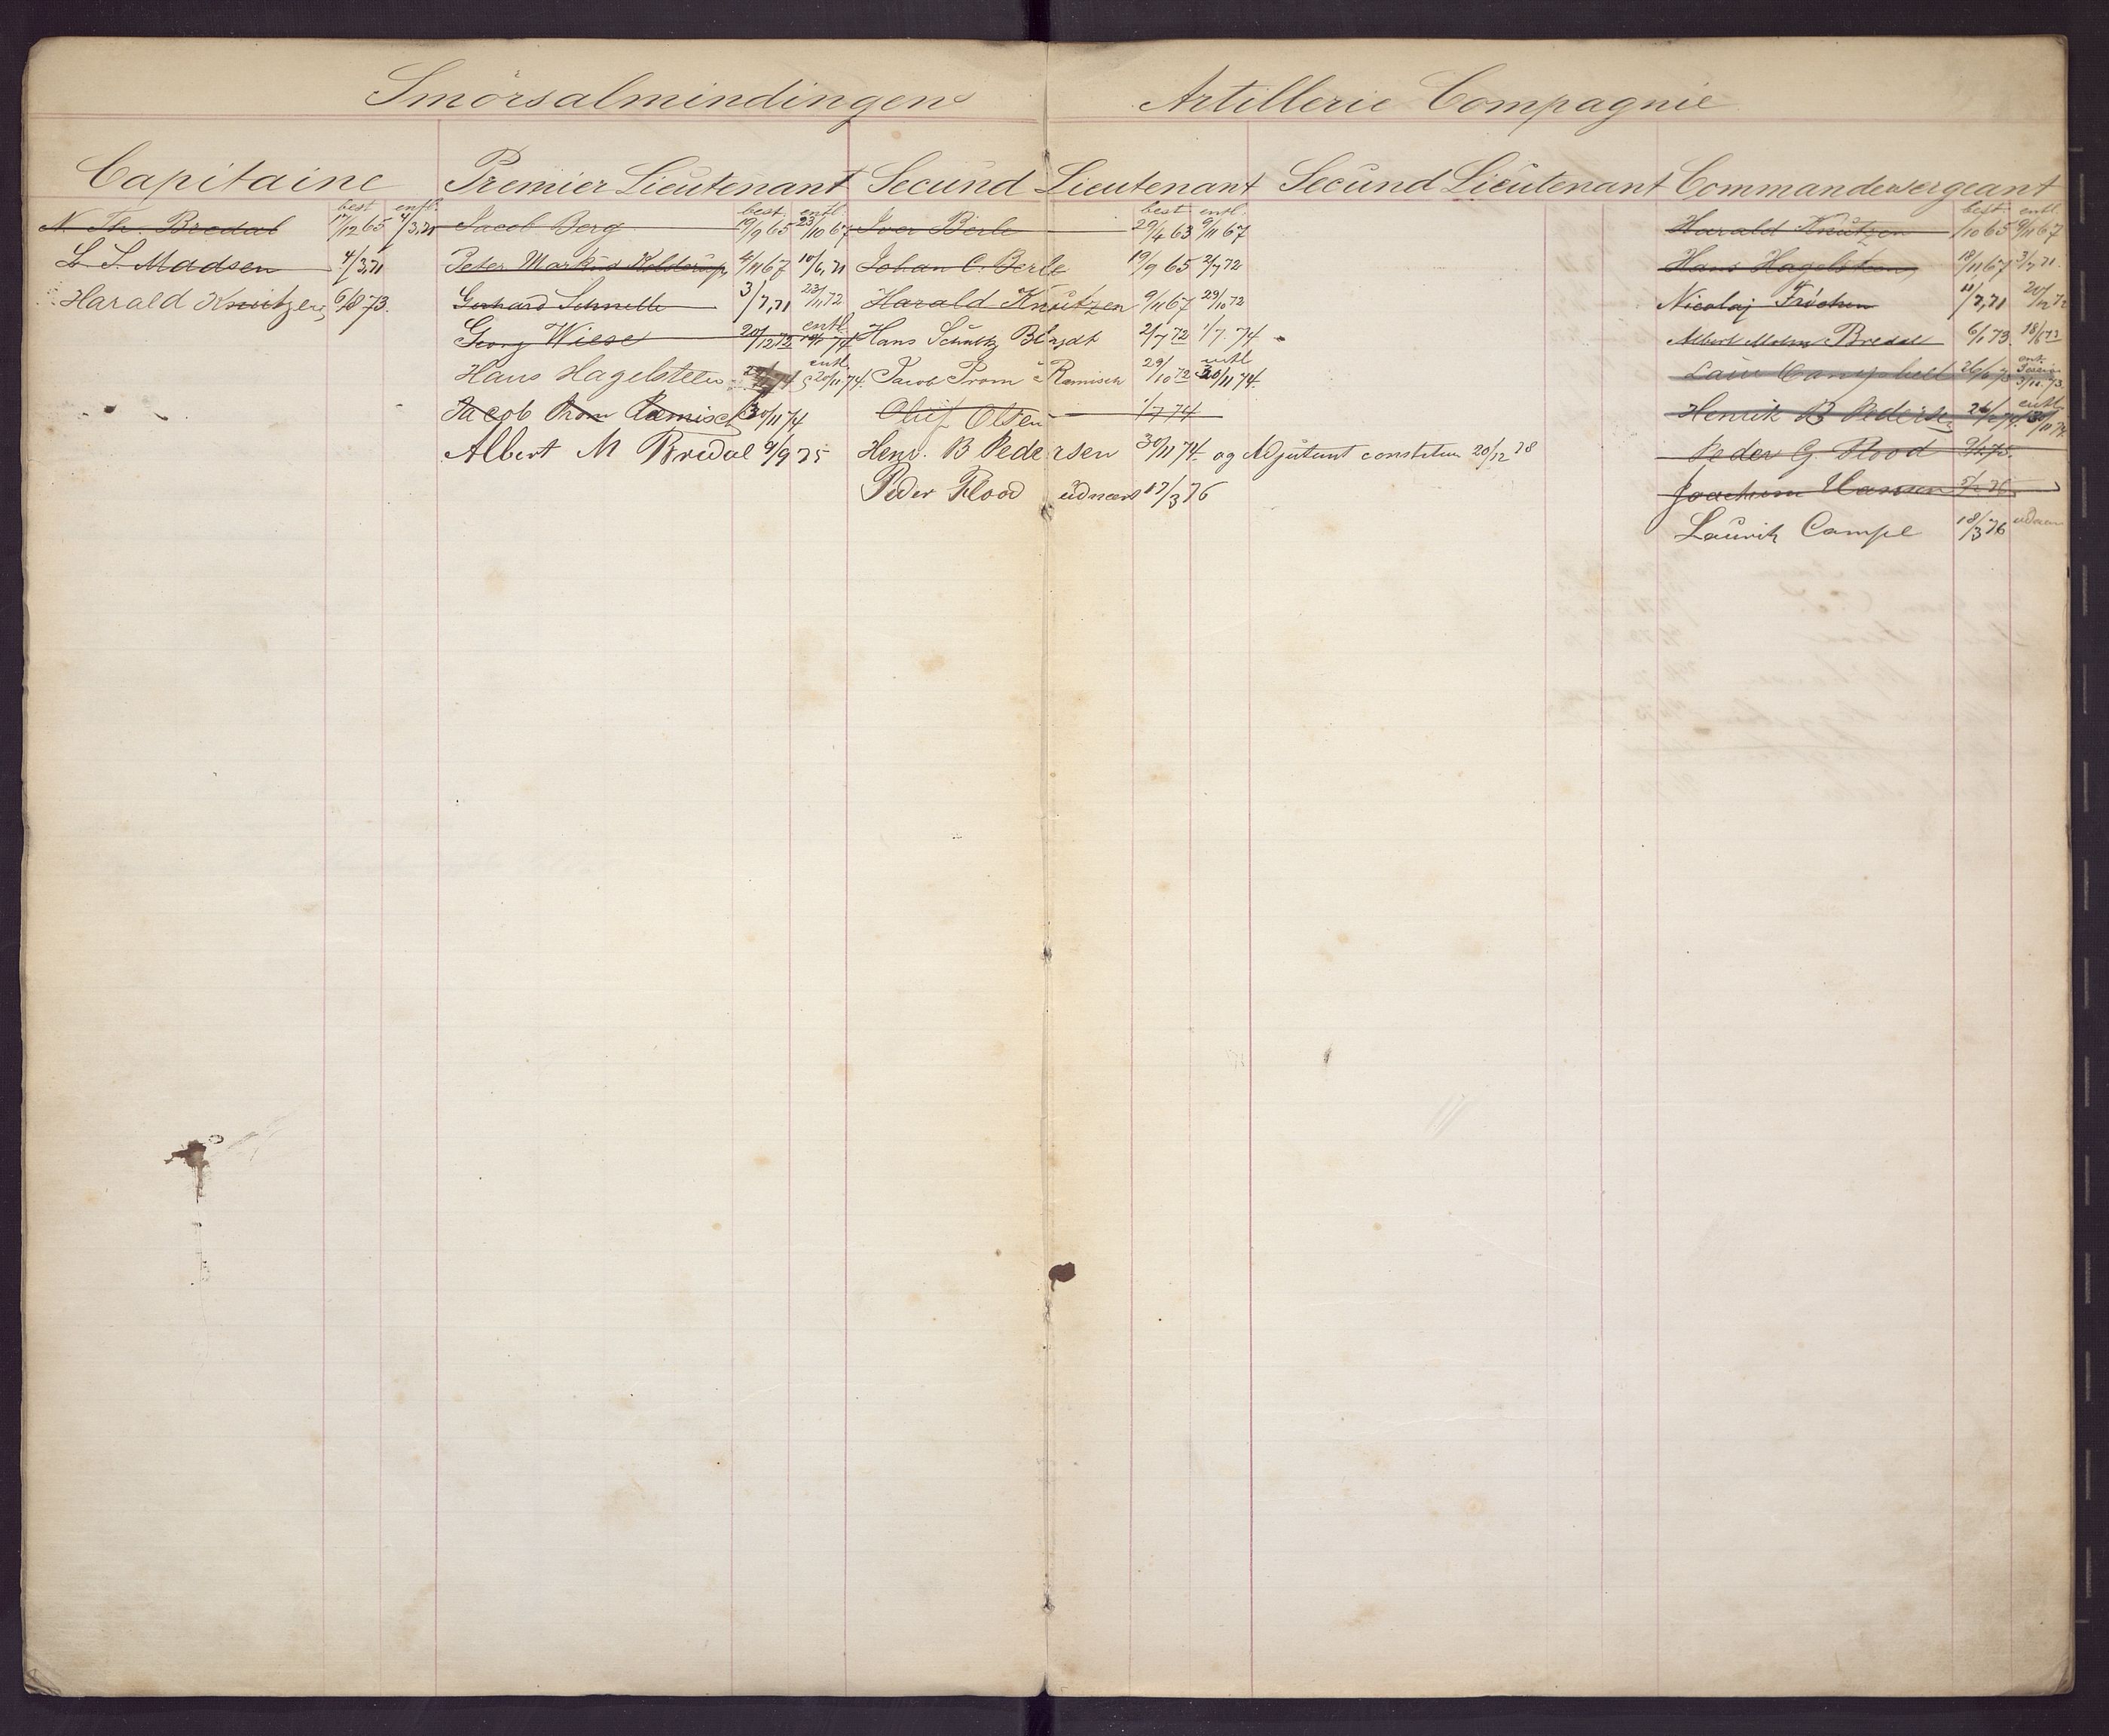 Smörsalmindingens Artillerie Compagnie
Capitaine Premier Lieutenant Secund Lieutenant Secund Lieutenant Commandersergeant
best entl. best. entl. best entl. best entl.
N. Th. Bredal 17/12 65 4/3,71 Jacob Berg 19/9 65 23/10 67 Iver Berle 29/4 63 9/11 67 Harald Knutzen /10 65 9/11 67
L. S. Madsen 4/3,71 Peter Markus Kolderup 4/11 67 10/6,71 Johan C. Berle 19/9 65 2/7 72 Hans Hagelsteen 18/11 67 3/7 71
Harald Knutzen 6/8 73. Gerhard Schnelle 3/7,71 23/11 72 Harald Knutzen 9/11 67 29/10 72 Nicolaj Fröchen 11/7,71 20/12 72
Georg Wiese 20/12 72 entl. 74 Hans Schultz Blÿdt 2/7 72 1/7. 74 Albert Molm Bredal 6/1 73. 18/6 73
Hans Hagelsteen entl 20/11 74. Jacob Prom Ramisch 29/10 72 entl 20/11 74. Laur Campbell 26/6 73
Jacob Prom Ramisch 30/11 74 Oluf Olsen 1/7 74 Henrik B Pedersen entl 30/11 74
Albert M Bredal 9/9 75 Henr. B Pedersen 30/11 74. og Adjutant 20/12 78 Peder G. Flood
Peder Flood udnævnt 17/3 76 Joachim Hansen
Lauritz Campe 18/3 76